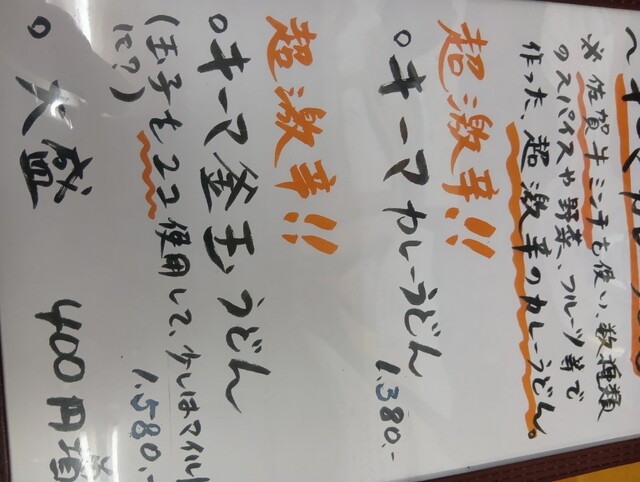 ※佐賀牛ミンチを使い、数種類
のスパイスや野菜、フルーツ等で
作った、超激辛のカレーうどん。
超激辛!!
○キーマカレーうどん
1,380.-
超激辛!!
○キーマ釜玉うどん
(玉子を2コ使用して、少しはマイルド
に?)
1,580.-
○大盛 400円増